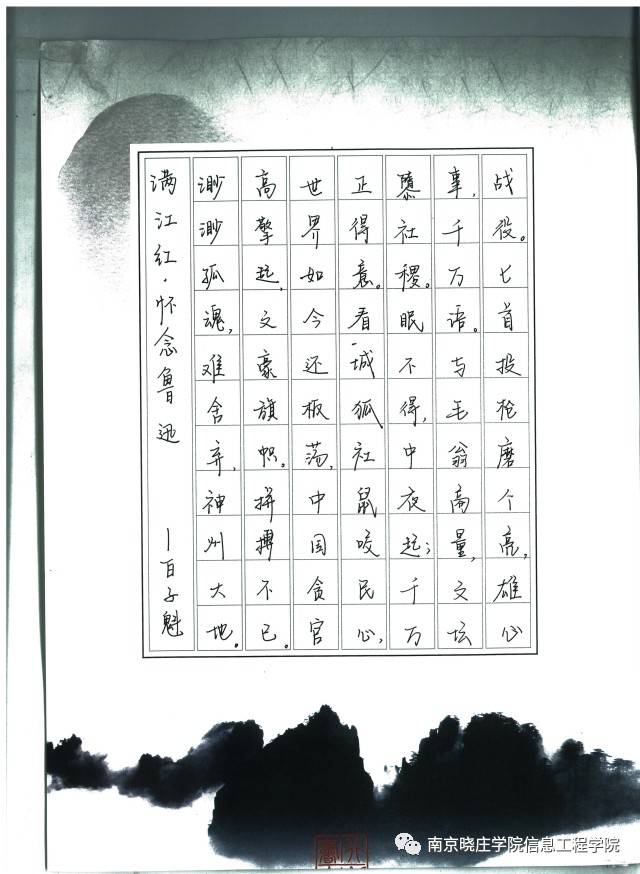 满江红·怀念鲁迅 —百子魁
渺渺孤魂,难舍弃,神州大地。
高擎起,文豪旗帜。拼搏不已。
世界如今还板荡,中国贪官
正得意。看城狐社鼠咬民心,
隳社稷。眠不得,中夜起;千万
事,千万语。与毛翁商量,文坛
战役。匕首投枪磨个亮,雄心
南京晓庄学院信息工程学院